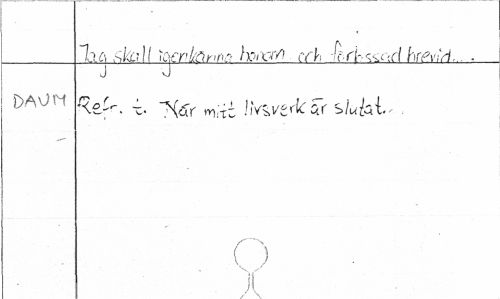 Jag skall igenkänna honom och förlossad brevid....
DAUM Refr. t. När mitt livsverk är slutat...